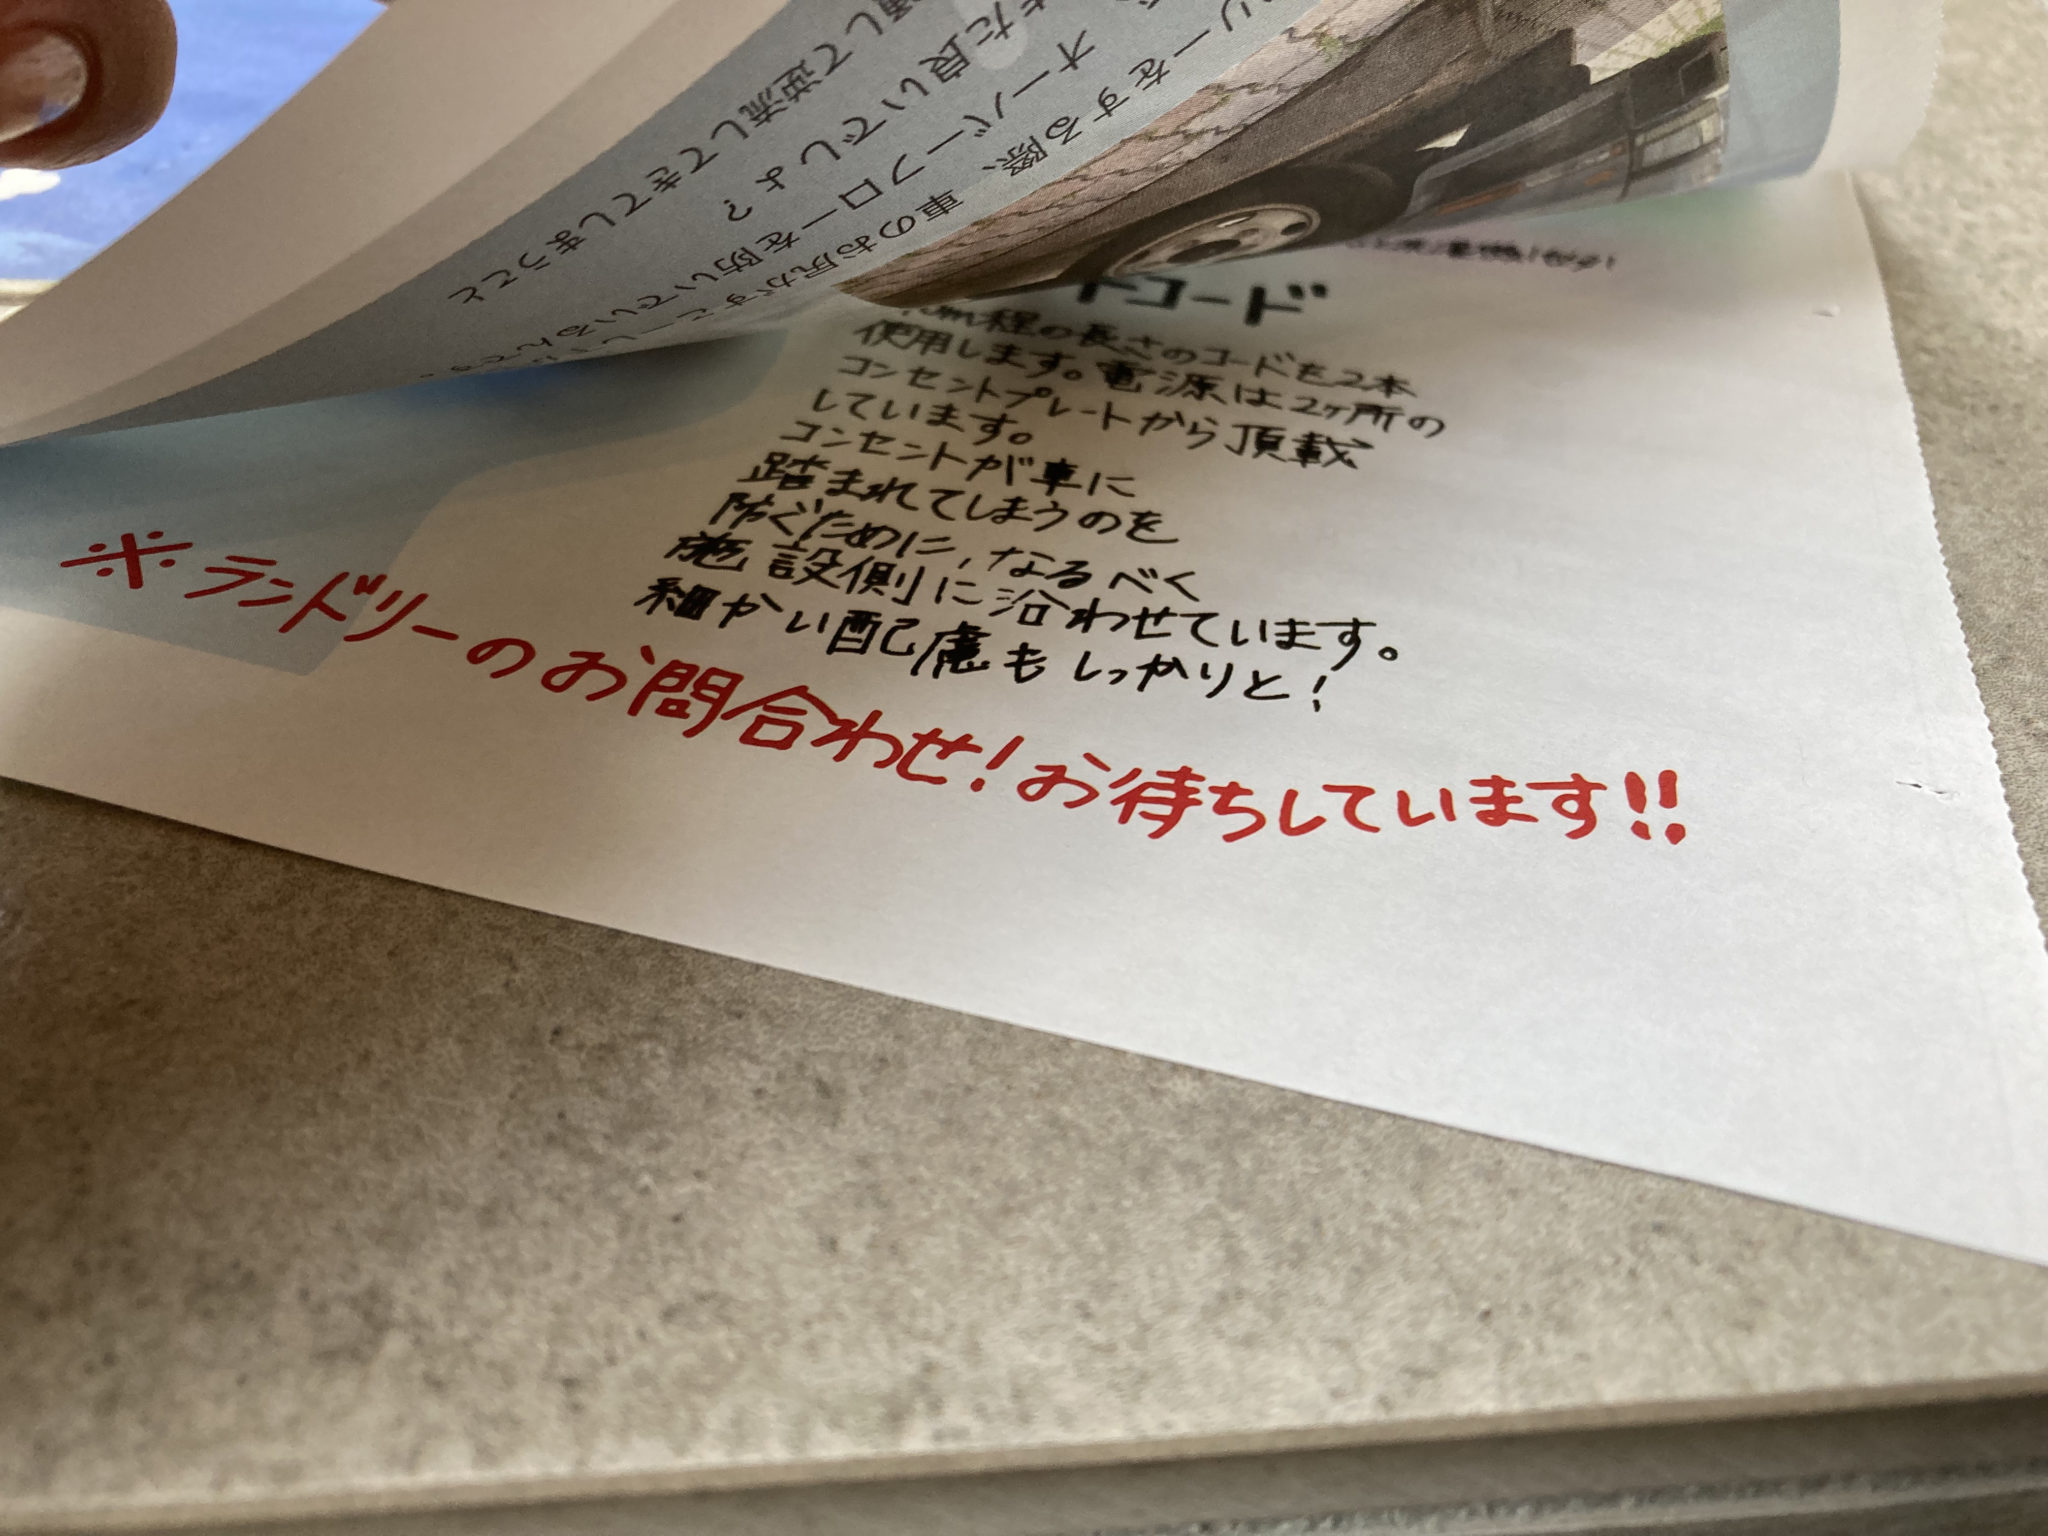 通して逆流してきてしまうこと
また良いでしょ?
オーバーフローを防いでいるんです。
リーをする際、車のお尻がすこーし
トコード
程の長さのコードを2本
使用します。電源は2ヶ所の
コンセントプレートから頂戴
しています。
コンセントが車に
踏まれてしまうのを
防ぐために、なるべく
施設側に沿わせています。
細かい配慮もしっかりと!
※ランドリーのお問合わせ!お待ちしています!!